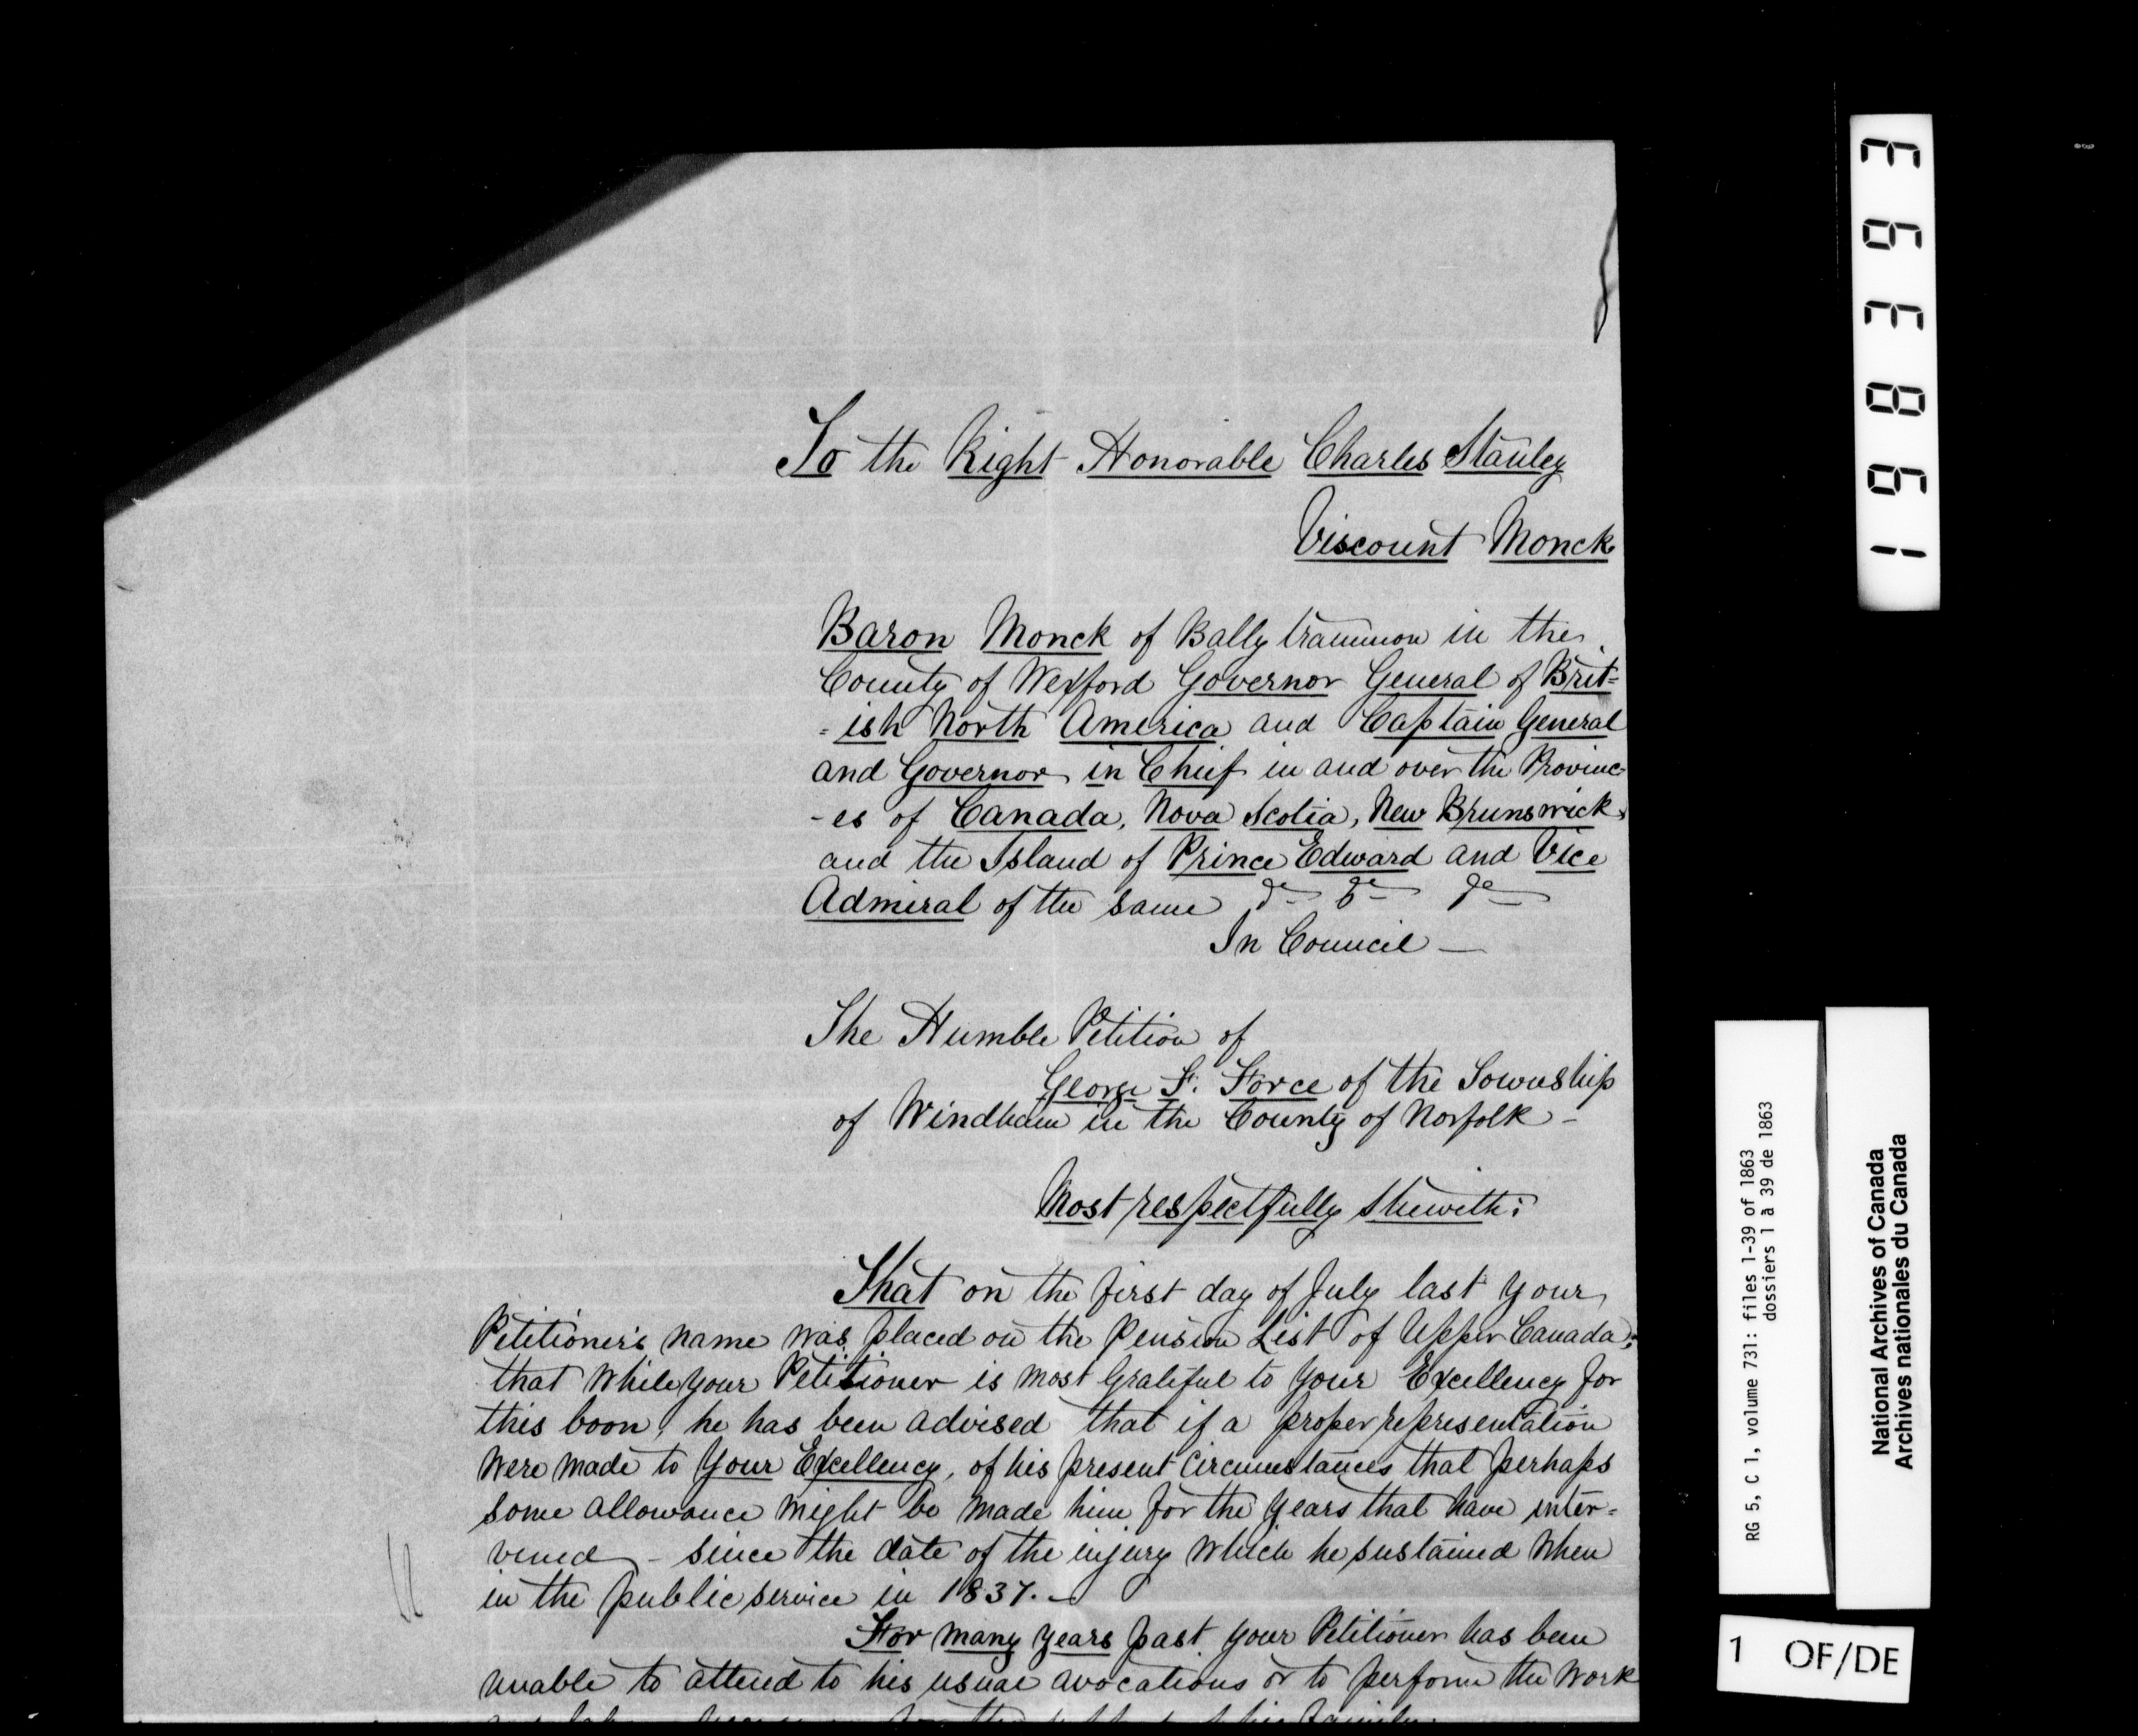 To the Right Honorable Charles Stanley
Viscount Monck
Baron Monck of Ballytrammon in the
County of Wexford Governor General of Brit=
=ish North America and Captain General
and Governor in Chief in and over the Provinc-
-es of Canada, Nova Scotia, New Brunswick
and the Island of Prince Edward and Vice
Admiral of the same &c &c &c
In Council —
The Humble Petition of
George F. Force of the Township
of Windham in the County of Norfolk -
Most respectfully Sheweth:
That on the first day of July last your
Petitioner's name was placed on the Pension List of Upper Canada;
that while your Petitioner is most Grateful to Your Excellency for
this boon, he has been advised that if a proper representation
were made to Your Excellency, of his present Circumstances that perhaps
some allowance might be made him for the years that have inter=
vened - since the date of the injury which he sustained when
in the public service in 1837. -
For many years past your Petitioner has been
unable to attend to his usual avocations or to perform the work
198363
RG 5, C 1, volume 731: files 1-39 of 1863
dossiers 1 à 39 de 1863
National Archives of Canada
Archives nationales du Canada
1 OF/DE